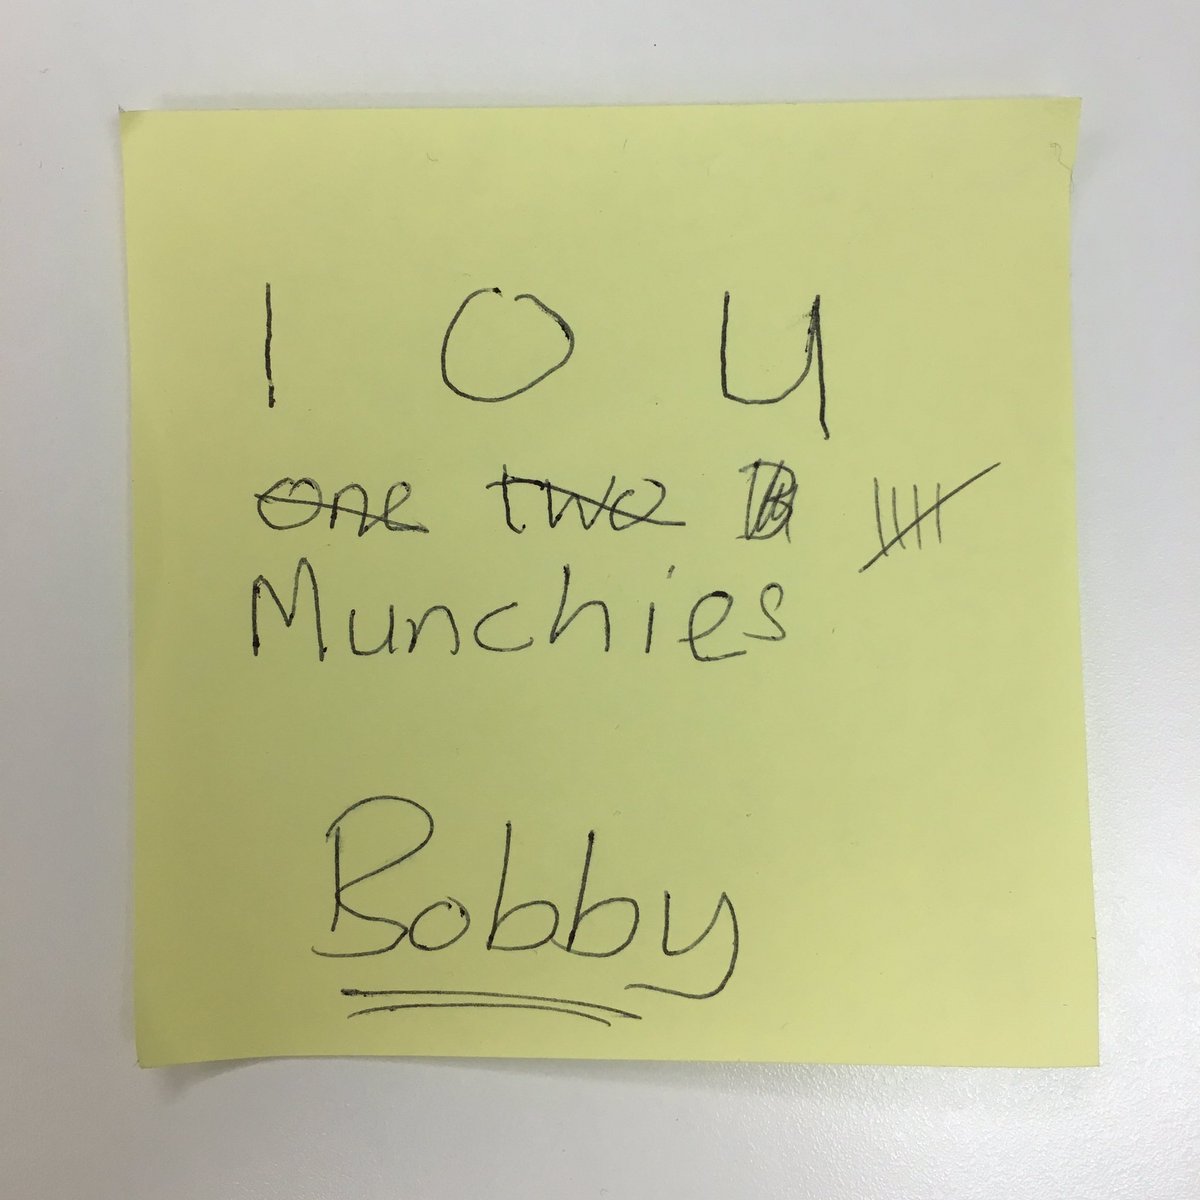 I O U
one two
Munchies
Bobby